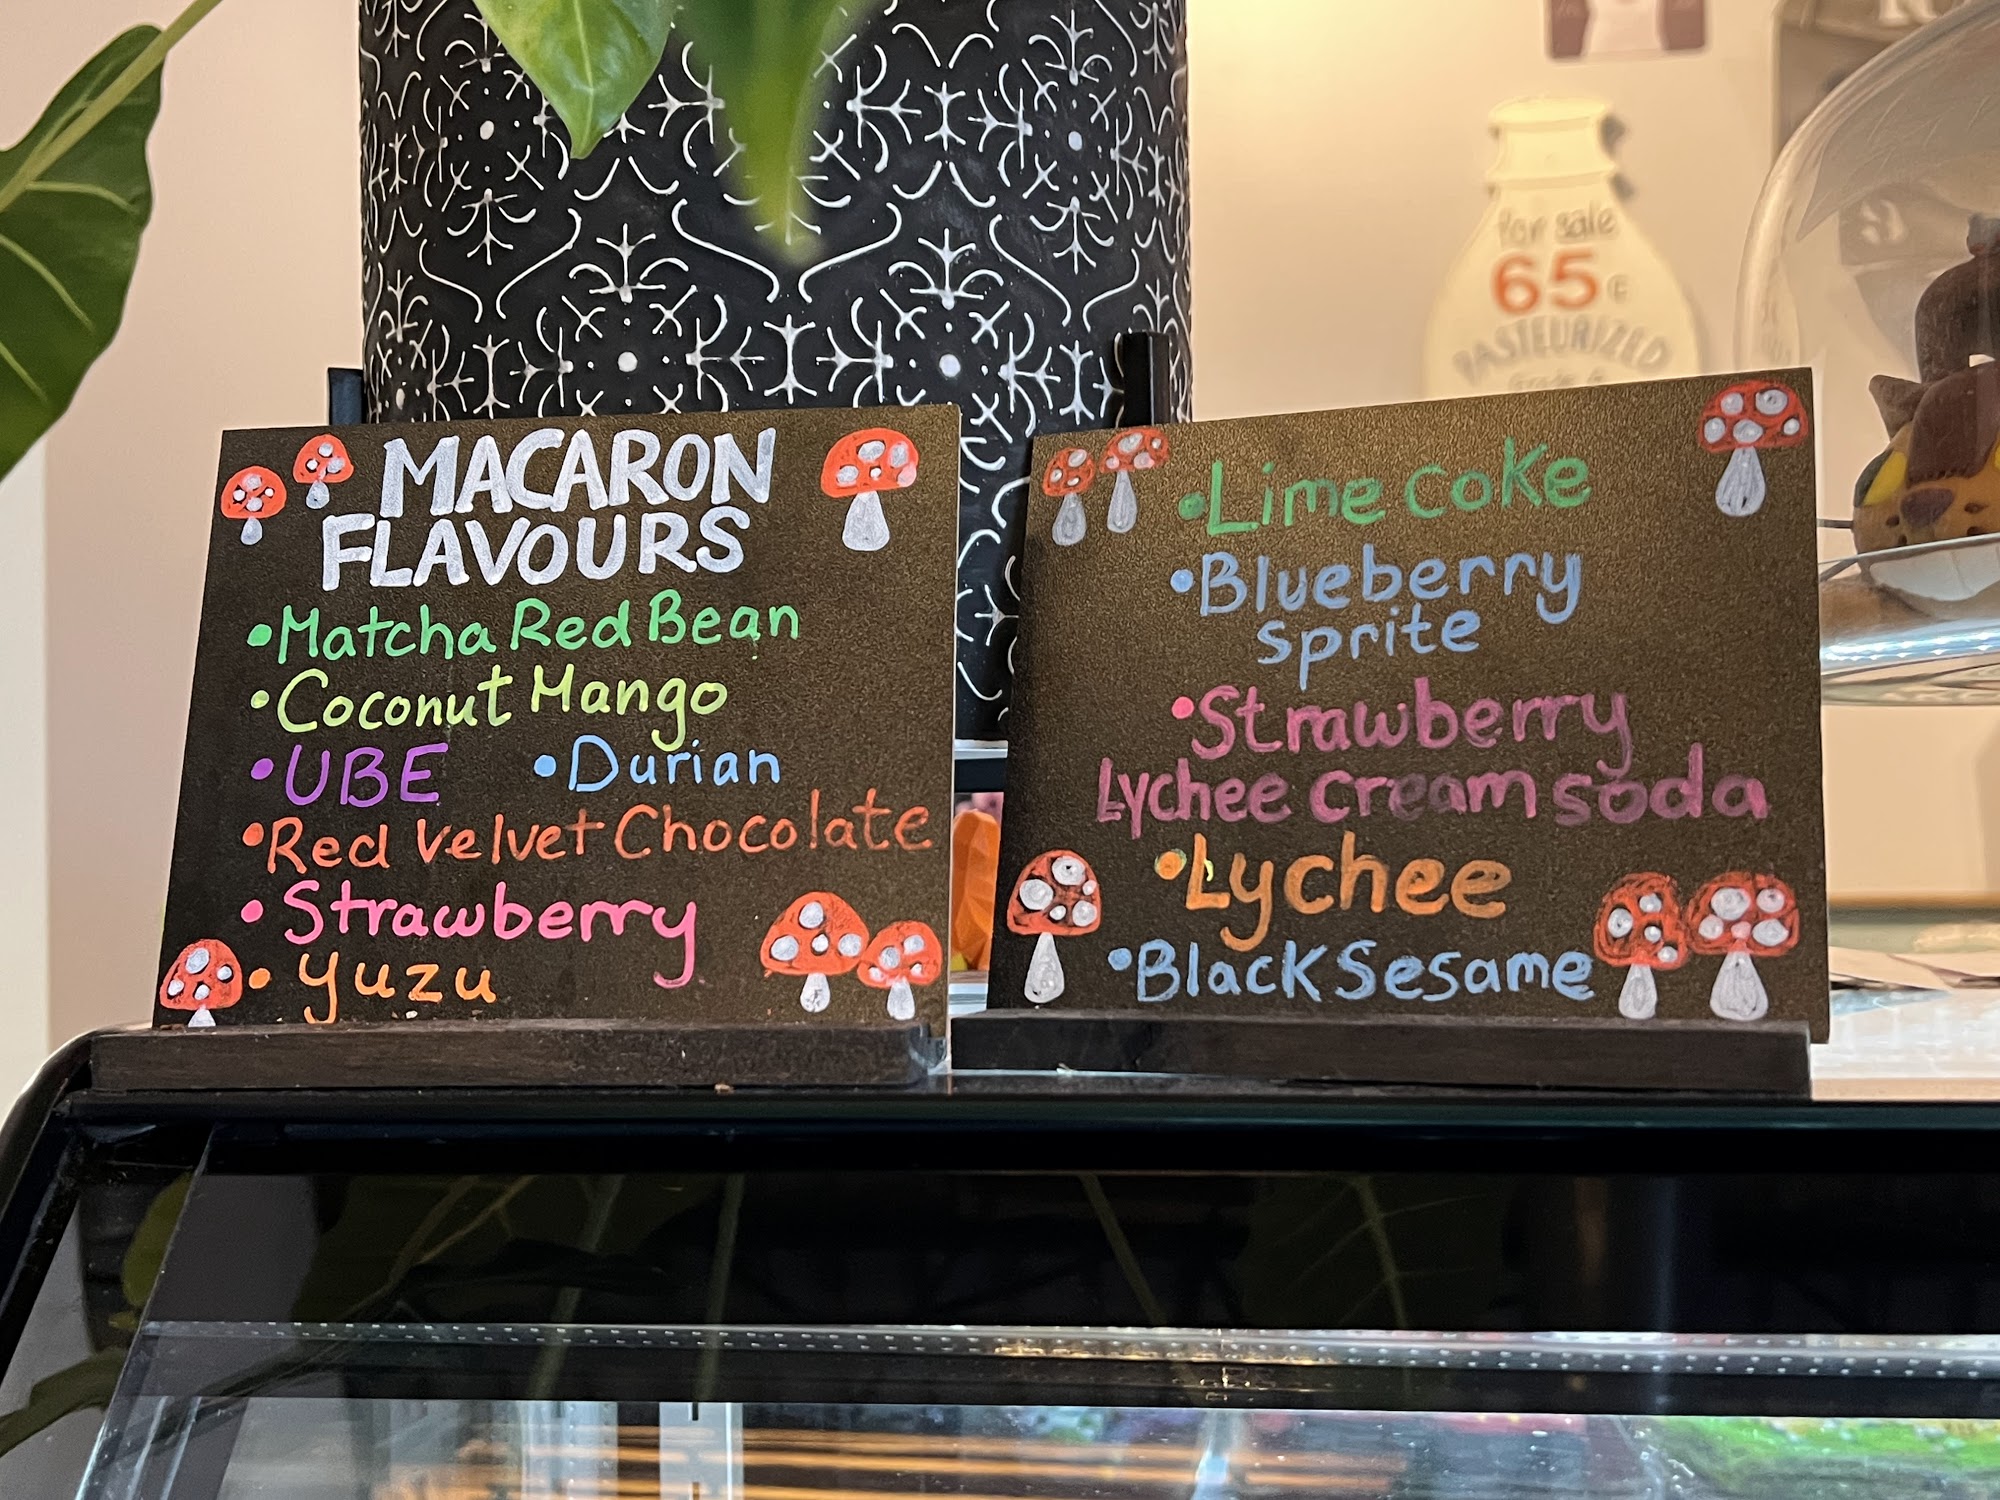 MACARON
FLAVOURS
•Matcha Red Bean
•Coconut Mango
•UBE •Durian
•Red Velvet Chocolate
•Strawberry
•Yuzu
•Lime Coke
•Blueberry
Sprite
•Strawberry
Lychee Cream soda
•Lychee
•Black Sesame
For sale
65¢
PASTEURIZED